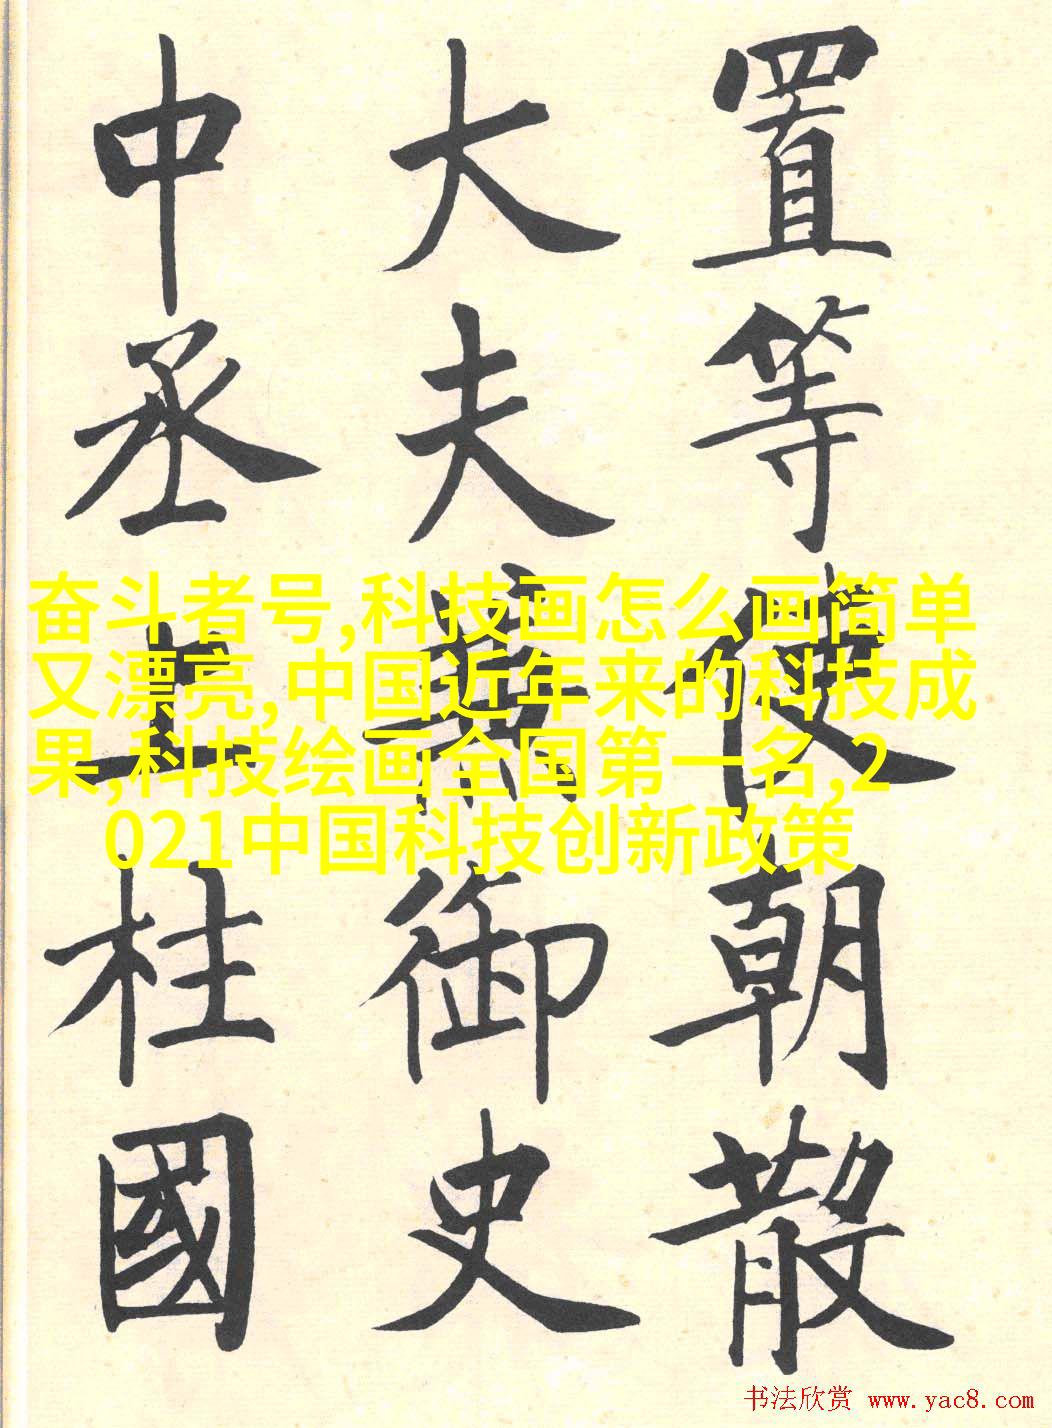 置等使朝散
大夫兼御史
中丞上柱國
奋斗者号,科技画怎么画简单
又漂亮,中国近年来的科技成
果,科技绘画全国第一名,2
021中国科技创新政策
书法欣赏 www.yac8.com